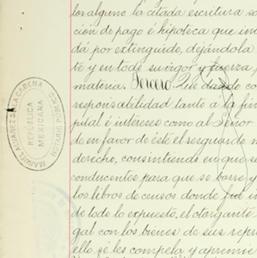 los alguno la citada escritura
cion de pago é hipoteca que
dá por extinguido, dejándola
te y en todo su vigor y fuerza
materia. Tercero. Que
responsabilidad tanto a la
pital é intereses como al Señor
de en favor de éste el resguardo
derecho, consintiendo en que se
conducentes para que se borre y
los libros de censos donde
de todo lo expuesto, el otorgante
gal con los bienes de sus
ello, se les compela y apremie
MANUEL ALVAREZ DE LA CADENA
NOTARIO PUBLICO
REPUBLICA
MEXICANA